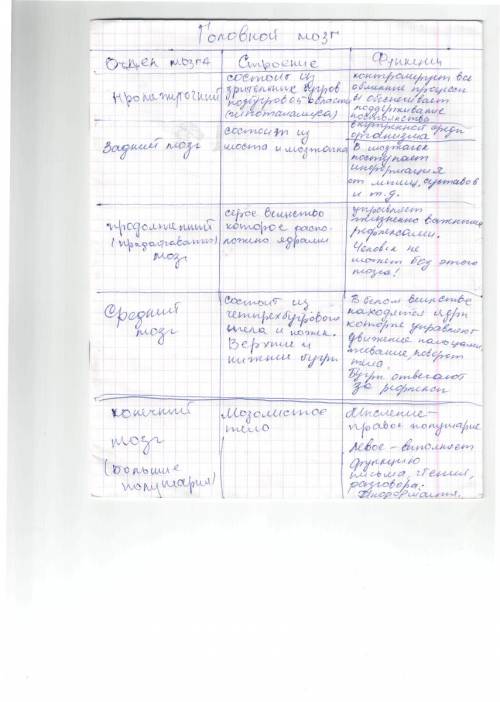 Головной мозг
Отдел мозга
Строение
Функции
Промежуточный
состоит из
зрительных бугров
подбугровой области
(гипоталамуса)
контролирует все
обменные процессы
и обеспечивает
поддерживание
постоянства
внутренней среды
организма
Задний мозг
состоит из
моста и мозжечка
В мозжечок
поступает
информация
от мышц, суставов
и т.д.
Продолговатый
мозг
серое вещество
которое распо-
ложено ядрами
управляет
жизненно важными
рефлексами.
Человек не
может без этого
мозга!
Средний
мозг
состоит из
четверохбугрового
тела и ножек.
Верхние и
нижние бугры
В белом веществе
находятся ядра
которые управляют
движение пальцами,
жевание, поворот
тела.
Бугры отвечают
за рефлексы
Конечный
мозг
(большие
полушария)
Мозолистое
тело
Мышление-
правое полушарие
Левое - выполняет
функцию
письма, чтения,
разговора.